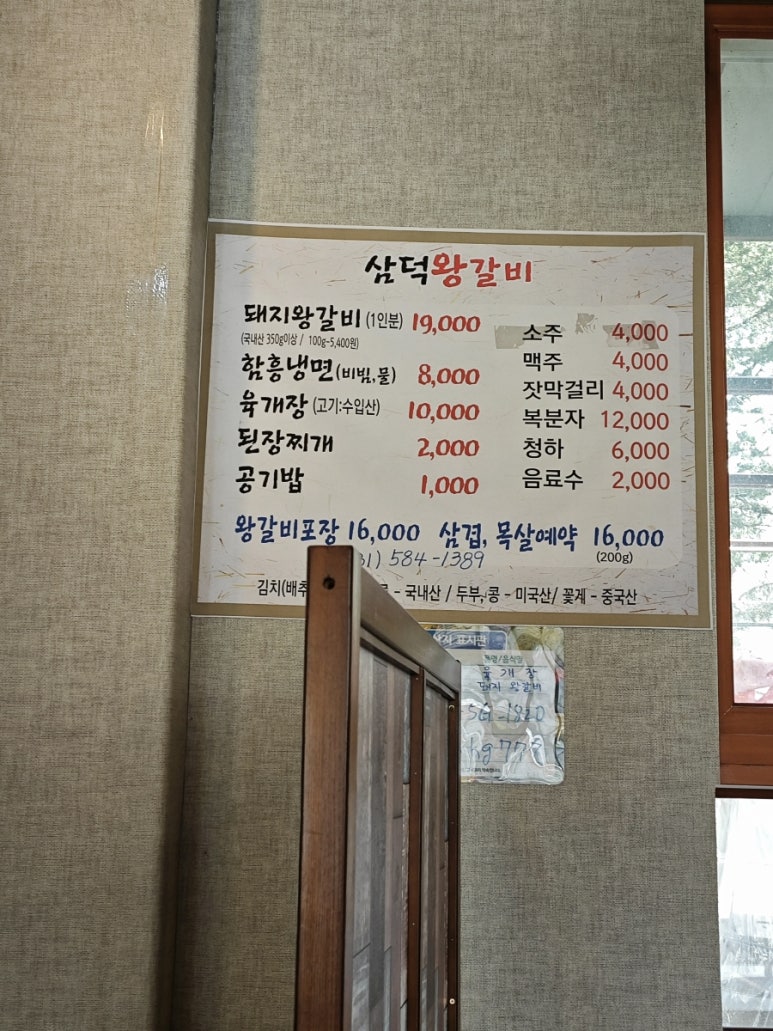 삼덕왕갈비
돼지왕갈비 (1인분) 19,000
(국내산 350g이상 / 100g~5,400원)
함흥냉면 (비빔,물) 8,000
육개장 (고기:수입산) 10,000
된장찌개 2,000
공기밥 1,000
소주 4,000
맥주 4,000
잣막걸리 4,000
복분자 12,000
청하 6,000
음료수 2,000
왕갈비포장 16,000 삼겹, 목살예약 16,000
(200g)
31) 584-1389
김치(배추 - 국내산 / 두부, 콩 - 미국산/ 꽃게 - 중국산
표시판
육개장
돼지 왕갈비